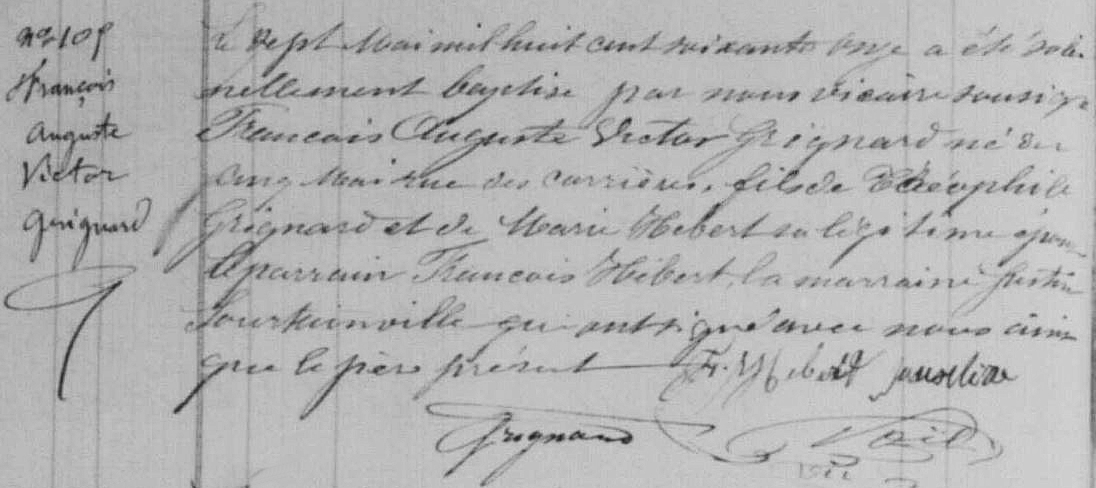 No 105
François
Auguste
Victor
Grignard
Le Sept Mai mil huit cent soixante onze a été solen
nellement baptisé par nous vicaire soussigné
Francois Auguste Victor Grignard né du
cinq Mai rue des carrières, fils de Théophile
Grignard et de Marie Hébert sa légitime épou
le parrain Francois Hébert, la marraine Justin
qui ont signé avec nous ainsi
que le père présent F. Hébert
Grignard